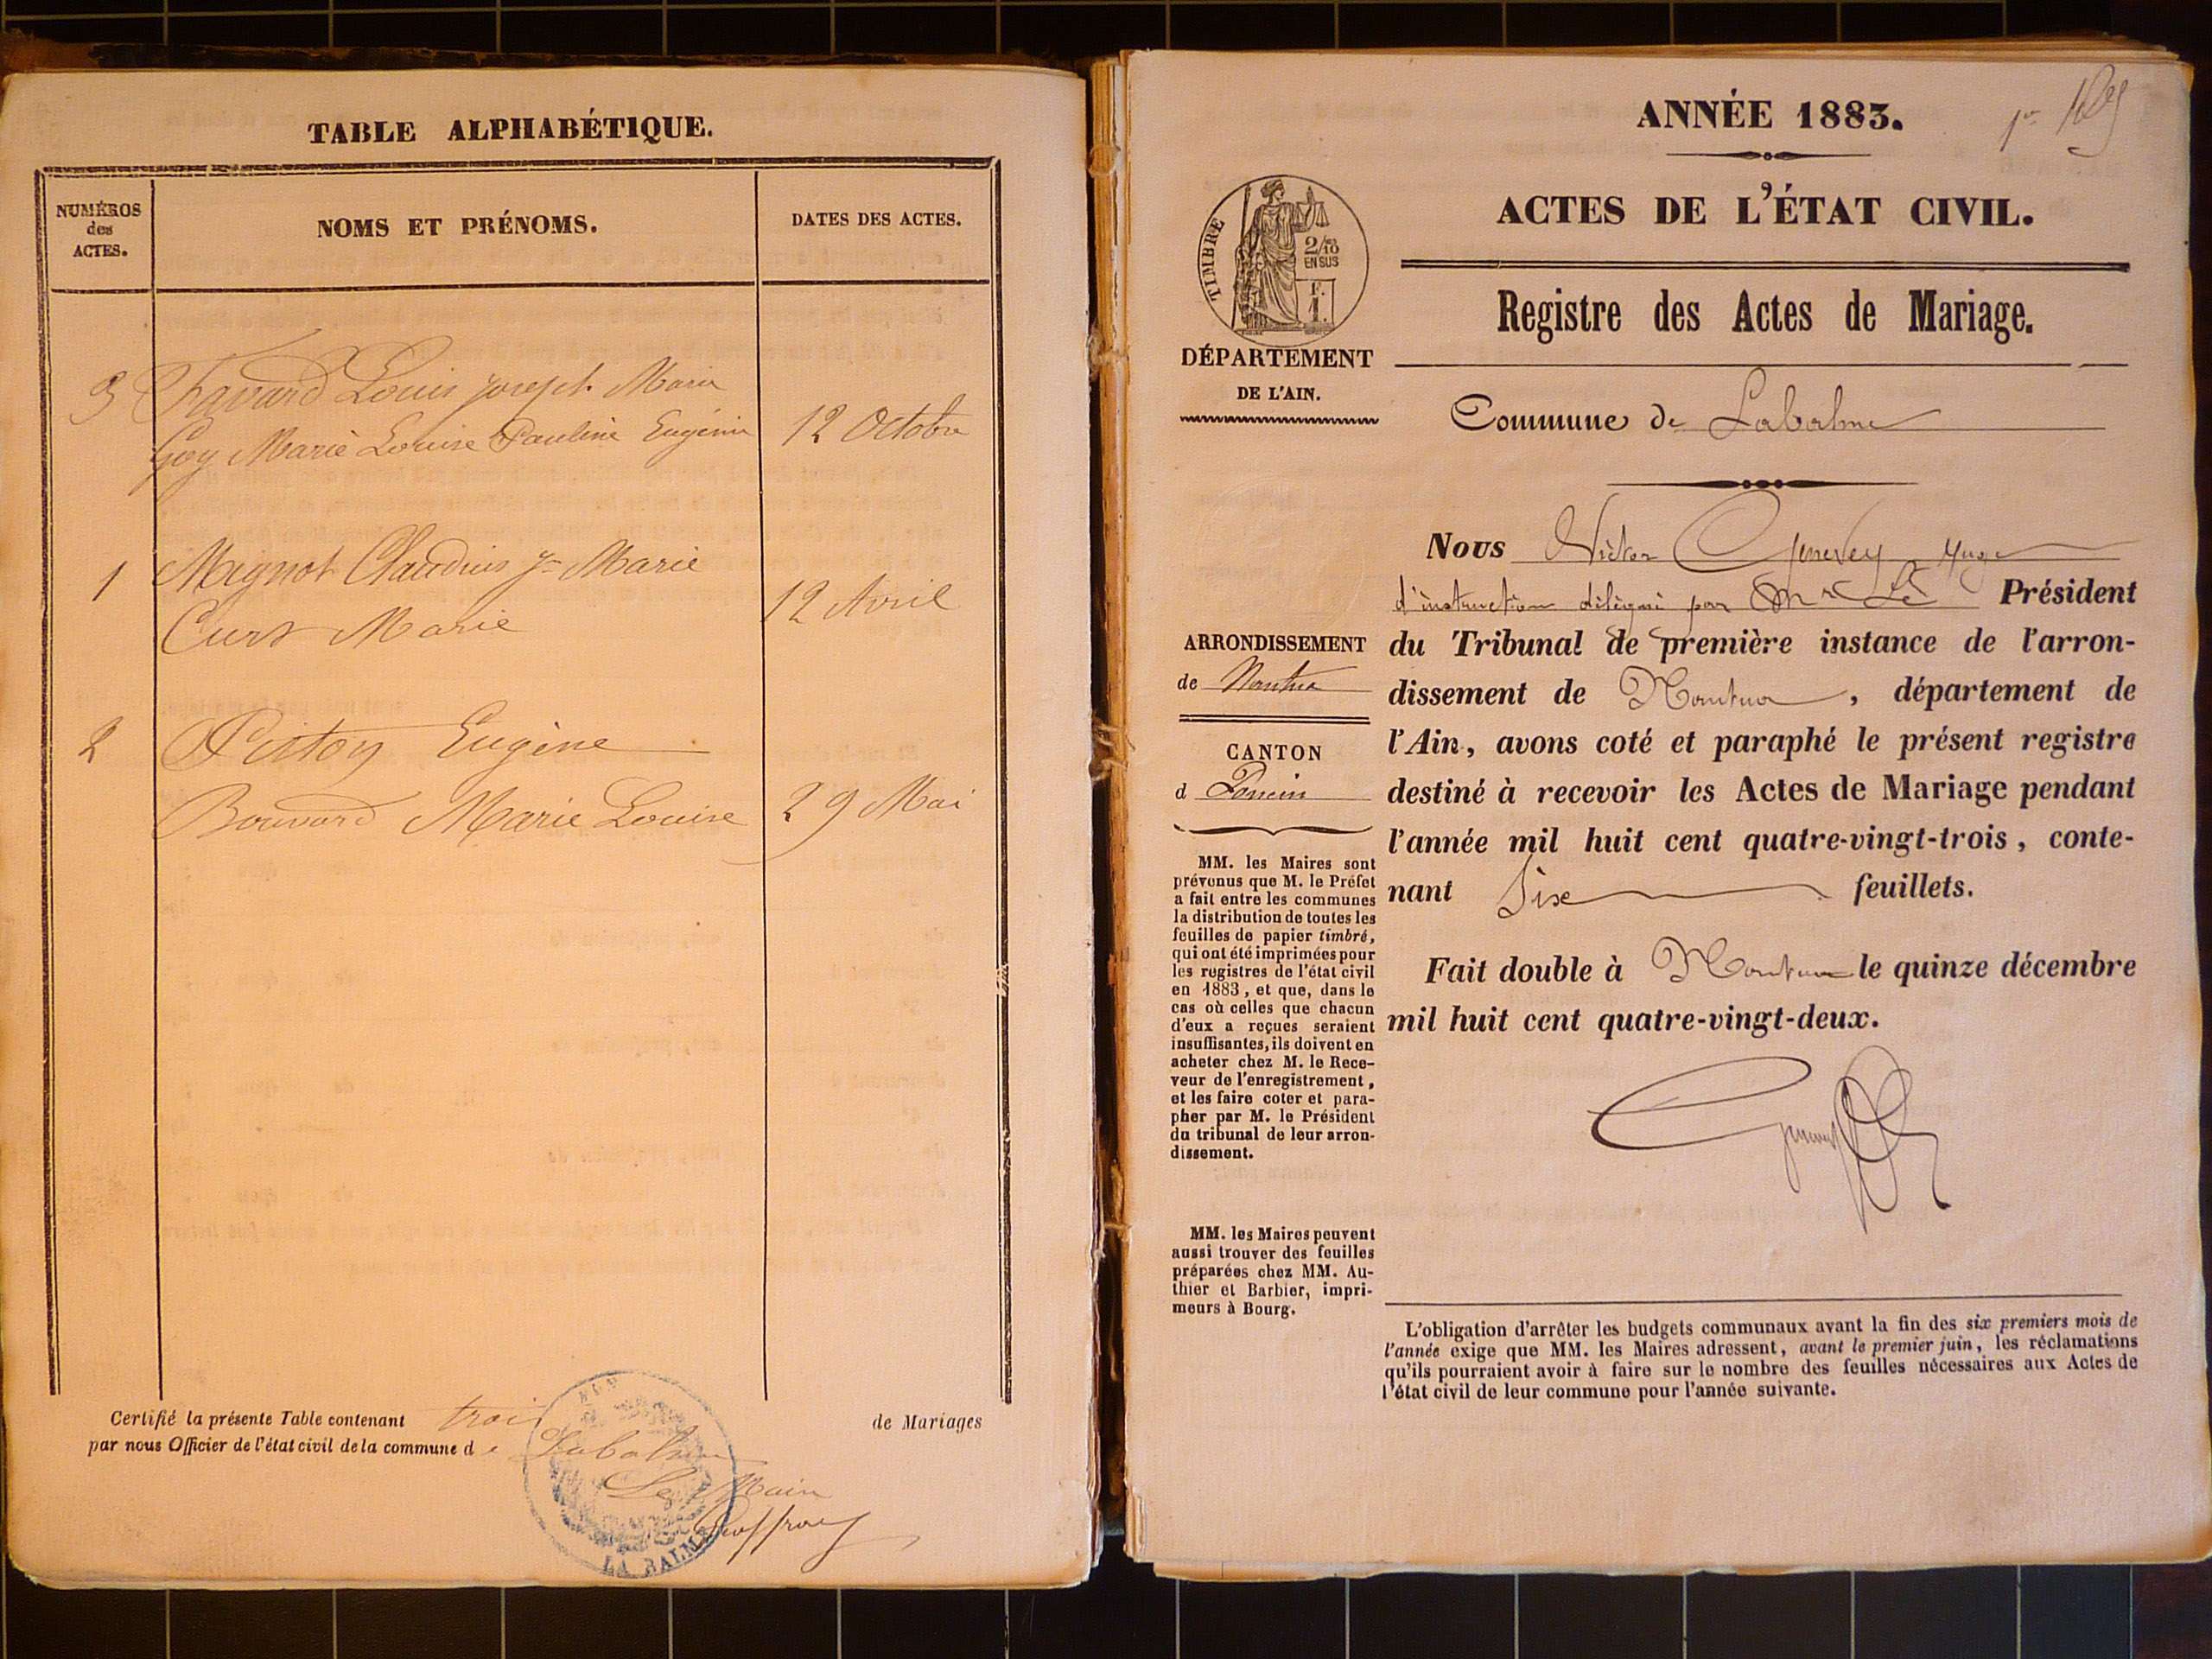 TABLE ALPHABÉTIQUE.
NUMÉROS
des
ACTES.
NOMS ET PRÉNOMS.
DATES DES ACTES.
3 Louis Joseph Marie
Goy Marie Louise Pauline Eugénie 12 Octobre
1 Mignot Claudius Jn Marie
Curt Marie 12 Avril
2 Piston Eugène
Bouvard Marie Louise 29 Mai
Certifié la présente Table contenant trois de Mariages
par nous Officier de l'état civil de la commune de Labalme
Le Maire
Geoffray
LA BALME
ANNÉE 1883.
1er
ACTES DE L'ÉTAT CIVIL.
Registre des Actes de Mariage.
TIMBRE
2/10
EN SUS
F.
1.
DÉPARTEMENT
DE L'AIN.
Commune de Labalme
ARRONDISSEMENT
de Nantua
CANTON
d Poncin
MM. les Maires sont
prévenus que M. le Préfet
a fait entre les communes
la distribution de toutes les
feuilles de papier timbré,
qui ont été imprimées pour
les registres de l'état civil
en 1883, et que, dans le
cas où celles que chacun
d'eux a reçues seraient
insuffisantes, ils doivent en
acheter chez M. le Rece-
veur de l'enregistrement,
et les faire coter et para-
pher par M. le Président
du tribunal de leur arron-
dissement.
MM. les Maires peuvent
aussi trouver des feuilles
préparées chez MM. Au-
thier et Barbier, impri-
meurs à Bourg.
Nous Victor Genevey Juge
d'instruction délégué par Mr Le Président
du Tribunal de première instance de l'arron-
dissement de Nantua, département de
l'Ain, avons coté et paraphé le présent registre
destiné à recevoir les Actes de Mariage pendant
l'année mil huit cent quatre-vingt-trois, conte-
nant Six feuillets.
Fait double à Nantua le quinze décembre
mil huit cent quatre-vingt-deux.
L'obligation d'arrêter les budgets communaux avant la fin des six premiers mois de
l'année exige que MM. les Maires adressent, avant le premier juin, les réclamations
qu'ils pourraient avoir à faire sur le nombre des feuilles nécessaires aux Actes de
l'état civil de leur commune pour l'année suivante.